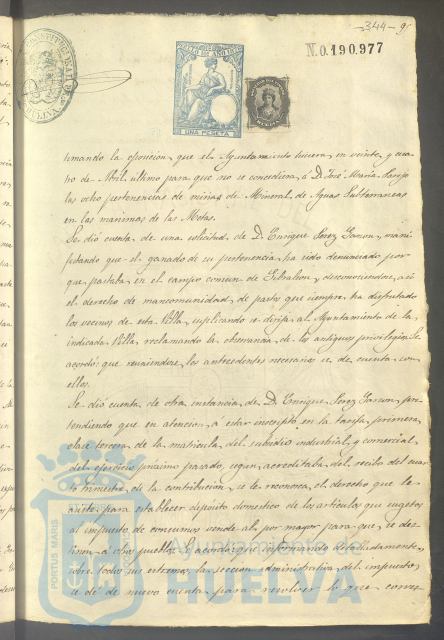 344-9
N.0.190.977
UNA PESETA
timando la oposicion que el Ayuntamiento hiciera en veinte y cua-
tro de Abril último para que no se concediera á D. José Maria
las ocho pertenencias de minas de Mineral de Aguas Subterraneas
en las marismas de las Metas.
Se dió cuenta de una solicitud de D. Enrique Perez Garzon, mani-
festando que el ganado de su pertenencia ha sido denunciado por-
que pastaba en el campo comun de Gibraleon, desconociendose, asi
el derecho de mancomunidad de pastos que siempre ha disfrutado
los vecinos de esta Villa, suplicando se dirija al Ayuntamiento de la
indicada Villa reclamando la observancia de los antiguos privilegios. Se
acordó que reuniendose los antecedentes necesarios se dé cuenta con
ellos.
Se dió cuenta de otra instancia de D. Enrique Perez Garzon, pre-
tendiendo que en atencion á estar inscripto en la tarifa primera
clase tercera de la matricula del subsidio industrial y comercial
del ejercicio próximo pasado, segun acreditaba del recibo del cuar-
to trimestre de la contribucion, se le reconozca el derecho que le
asiste para establecer deposito domestico de los articulos que sugetos
al impuesto de consumos vende al por mayor para que se des-
tinen á otros pueblos. Se acordó que informando detalladamente
sobre todos sus estremos la seccion administrativa del impuesto,
se dé de nuevo cuenta para resolver lo que conven-
PORTUS MARIS
Ayuntamiento de
HUELVA